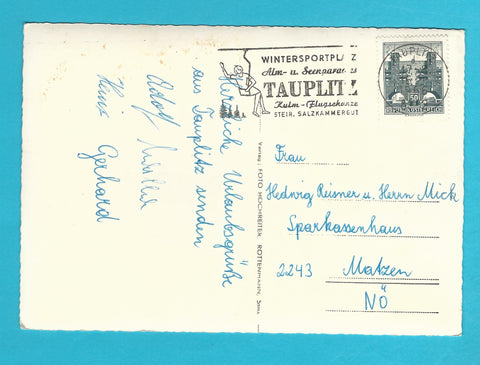 WINTERSPORTPLATZ
Alm- u. Seenparadies
TAUPLITZ
Kulm-Flugschanze
STEIR. SALZKAMMERGUT
TAUPLITZ
50
REPUBLIK ÖSTERREICH
Herzliche Urlaubsgrüße
aus Tauplitz senden
Adolf
Heinz Gerhard
Verlag: FOTO HOCHREITER, ROTTENMANN,
Frau
Hedwig Reisner u. Herrn Mick
Sparkassenhaus
2243 Matzen
NÖ